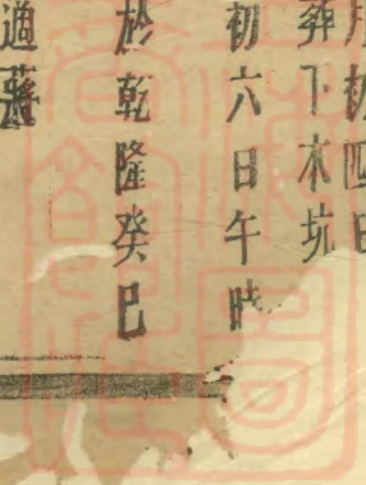 月初四日
葬下木坑
初六日午時
於乾隆癸巳
適蔣